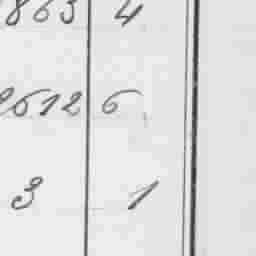 863 4
2512 6
3 1